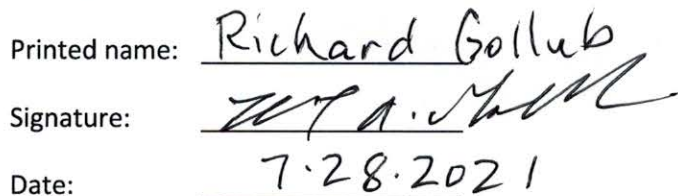 Printed name: Richard Gollub
Signature:
Date: 7.28.2021